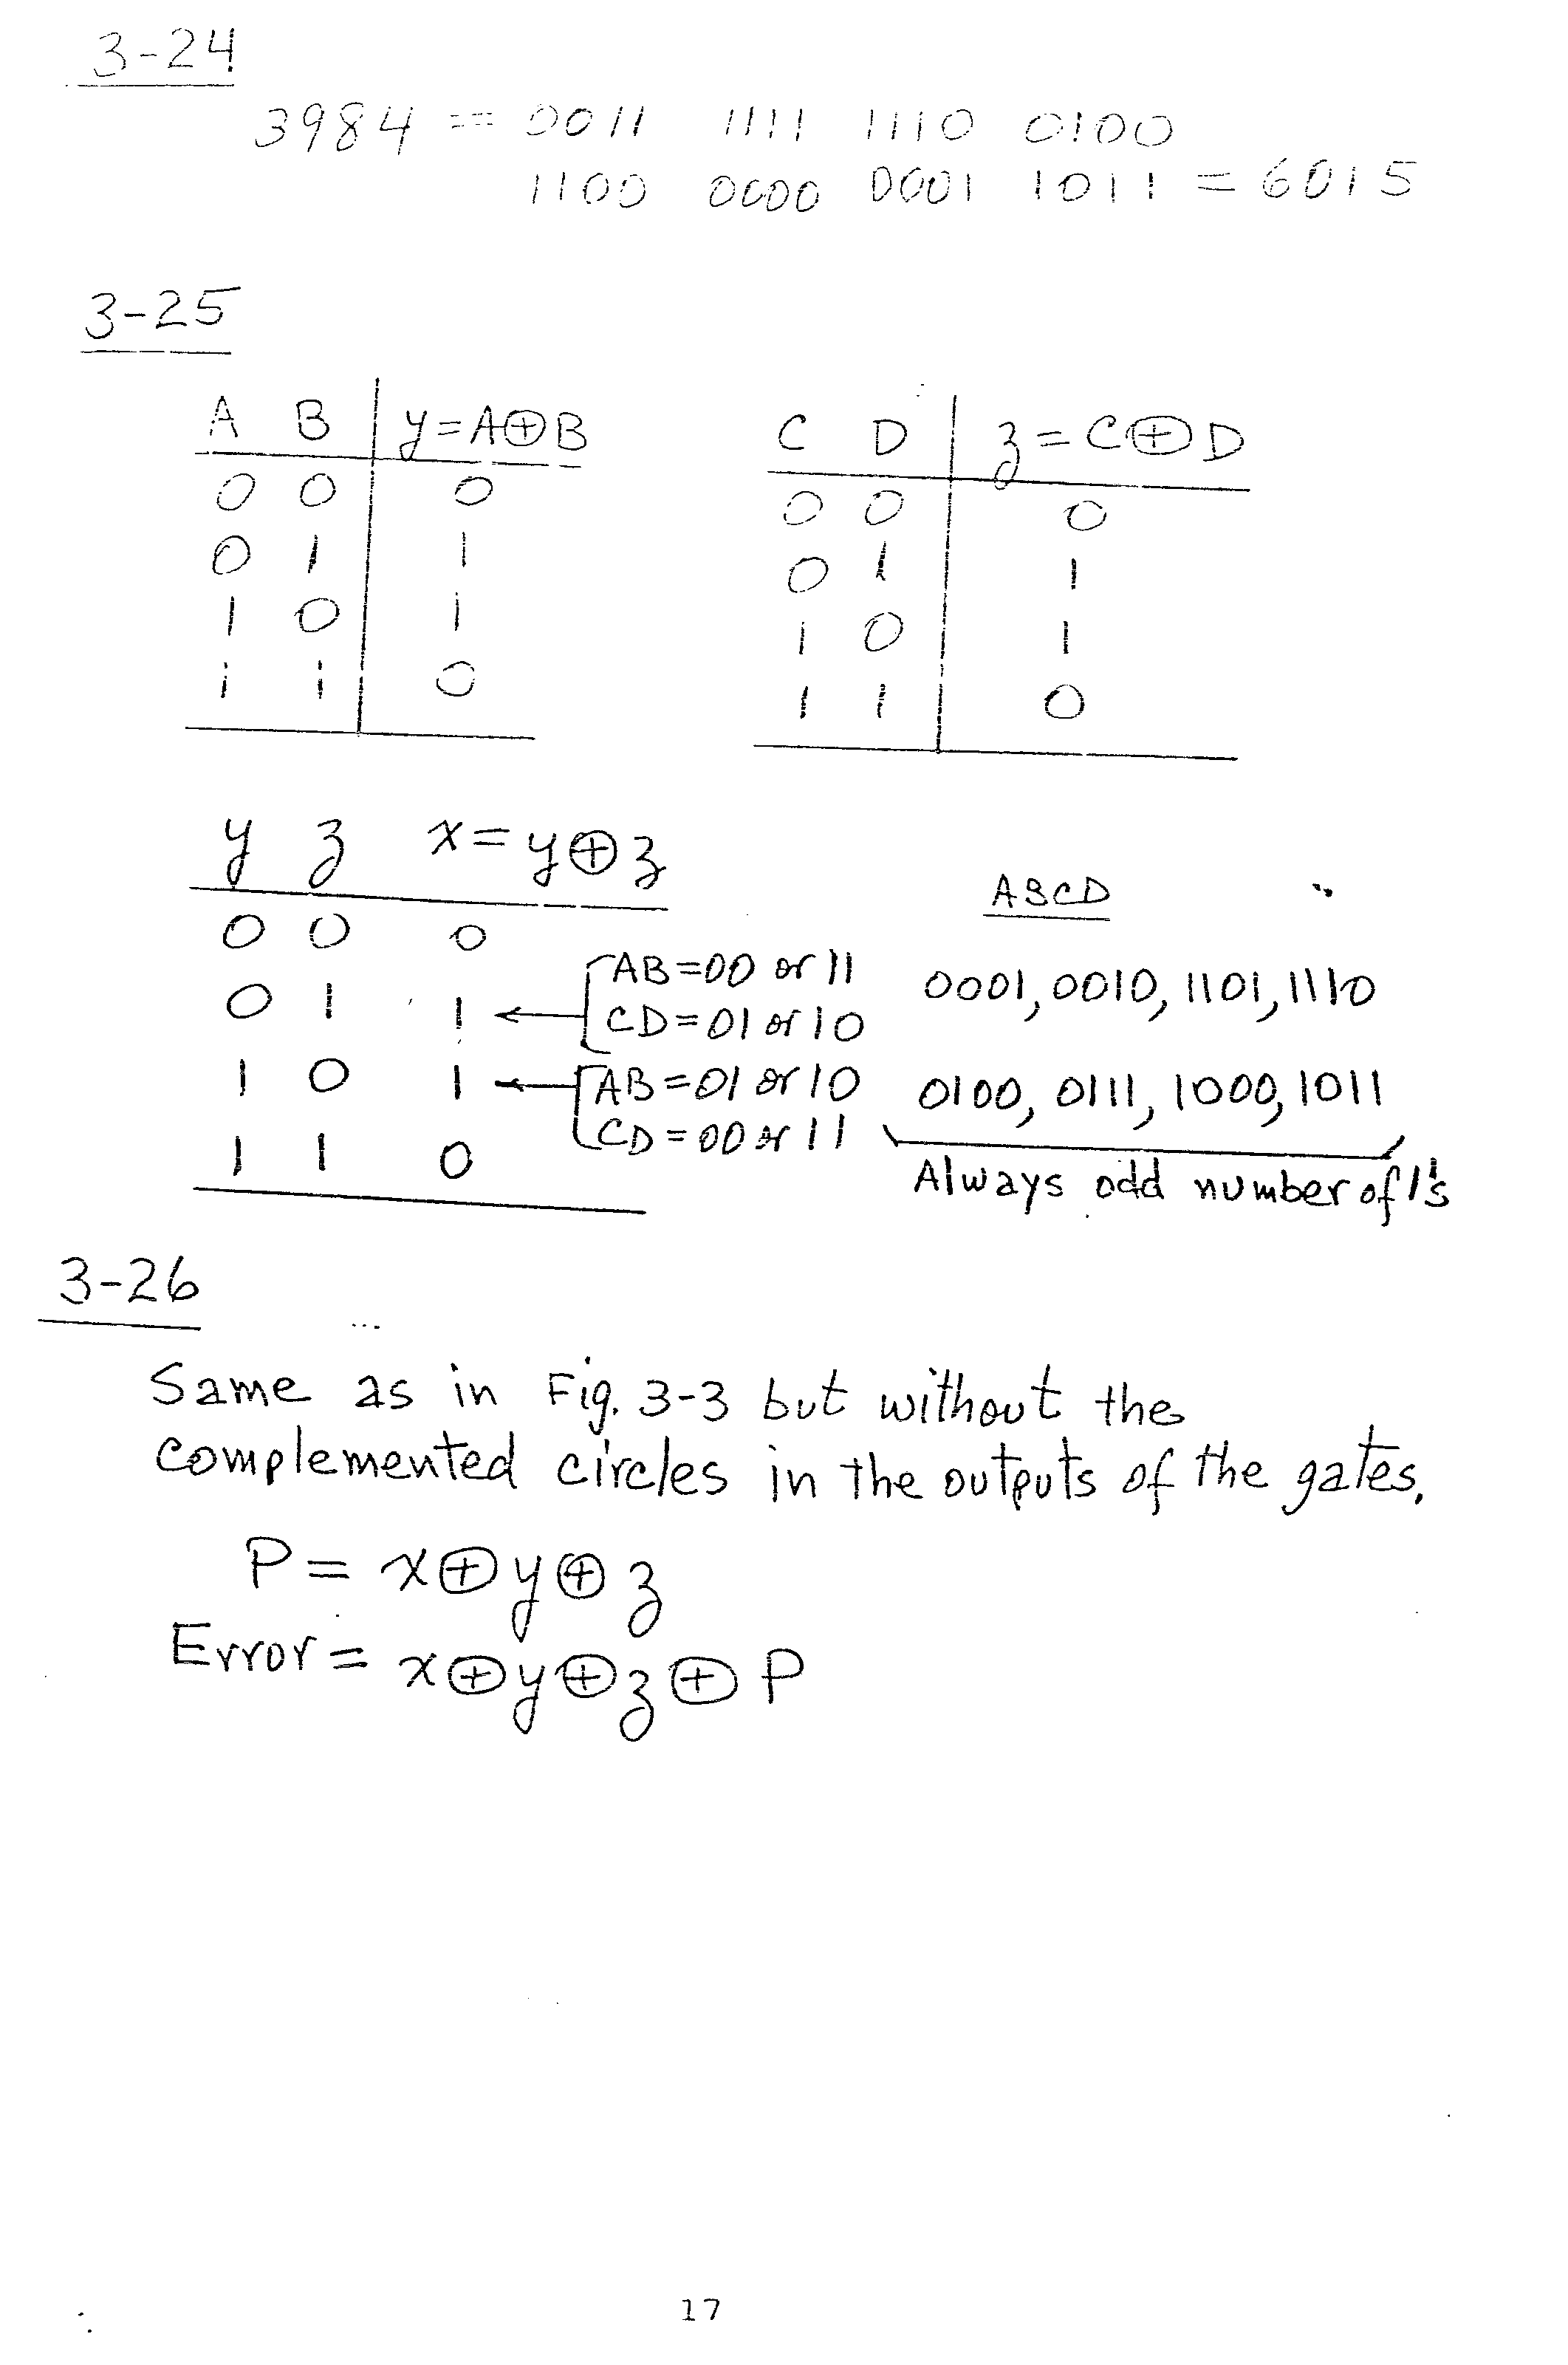 3-24
3984 = 0011 1111 1110 0100
1100 0000 0001 1011 = 6015
3-25
A B y=A⊕B
0 0 0
0 1 1
1 0 1
1 1 0
C D z=C⊕D
0 0 0
0 1 1
1 0 1
1 1 0
y z x=y⊕z
0 0 0
0 1 1
1 0 1
1 1 0
AB=00 or 11
CD=01 or 10
AB=01 or 10
CD=00 or 11
ABCD
0001, 0010, 1101, 1110
0100, 0111, 1000, 1011
Always odd number of 1's
3-26
Same as in Fig. 3-3 but without the
complemented circles in the outputs of the gates.
P = x⊕y⊕z
Error = x⊕y⊕z⊕P
17